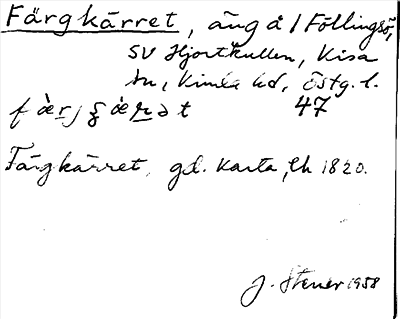 Färgkärret, äng å l Föllingsö,
SV Hjortkullen, Kisa
sn, Kinda hd, Östg. l.
47
Färgkärret, gd. karta, Ch 1820.
J. Stener 1958